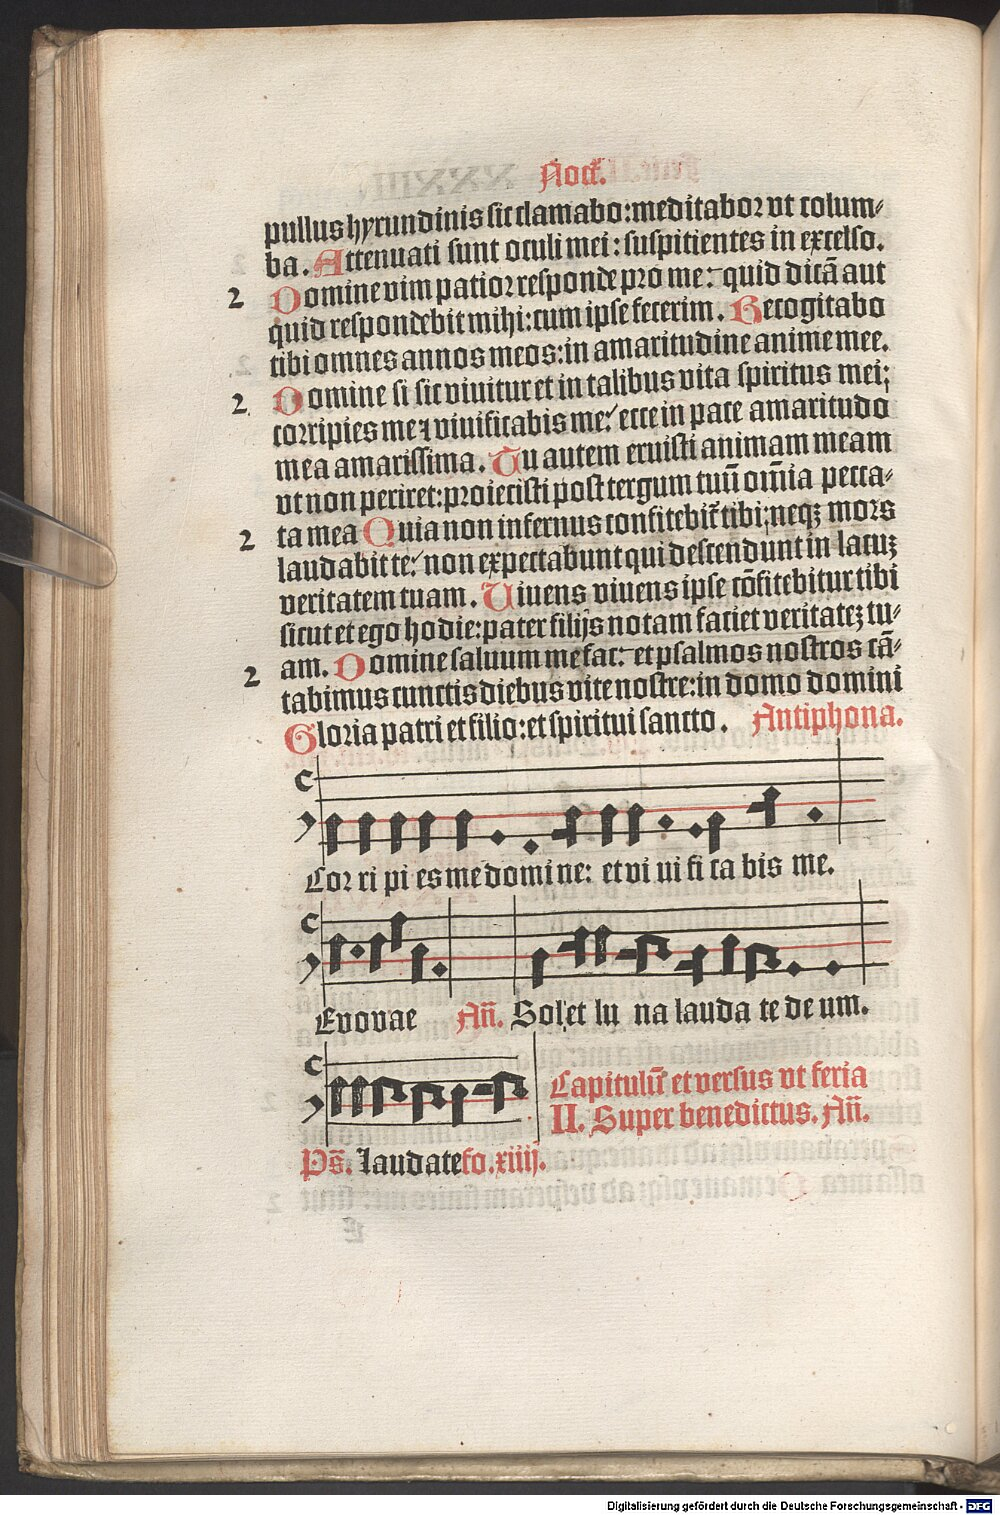 Noct̄.
pullus hyrundinis sic clamabo: meditabor vt colum-
ba. Attenuati sunt oculi mei: suspitientes in excelso.
2 Domine vim patior responde pro me: quid dicā aut
quid respondebit mihi: cum ipse fecerim. Recogitabo
tibi omnes annos meos: in amaritudine anime mee.
2. Domine si sic viuitur et in talibus vita spiritus mei;
corripies me ⁊ viuificabis me: ecce in pace amaritudo
mea amarissima. Tu autem eruisti animam meam
vt non periret: proiecisti post tergum tuū om̄ia pecca-
2 ta mea Quia non infernus confitebit̄ tibi; neqꝫ mors
laudabit te: non expectabunt qui descendunt in lacuꝫ
veritatem tuam. Uiuens viuens ipse cōfitebitur tibi
sicut et ego hodie: pater filijs notam faciet veritateꝫ tu-
2 am. Domine saluum me fac: et psalmos nostros cā-
tabimus cunctis diebus vite nostre: in domo domini
Gloria patri et filio: et spiritui sancto. Antiphona.
c
Cor ri pi es me domi ne: et vi ui fi ca bis me.
c
Evovae Añ. Sol et lu na lauda te de um.
c
Capitulū et versus vt feria
II. Super benedictus. Añ.
Ps̄. laudate fo. xiiij.
Digitalisierung gefördert durch die Deutsche Forschungsgemeinschaft - DFG